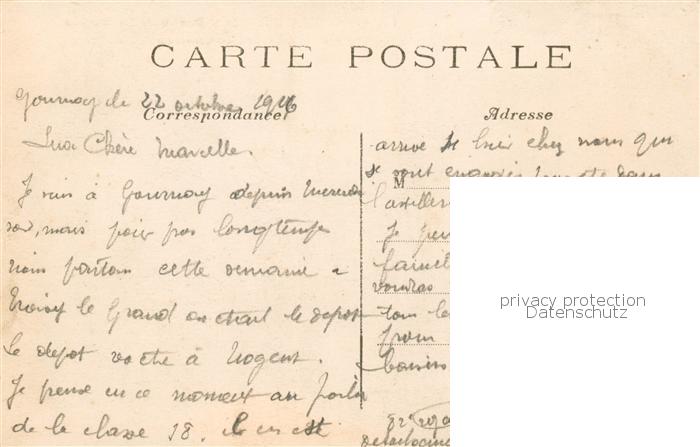 CARTE POSTALE
Gournay le 22 octobre 1916
Correspondance
Adresse
Ma Chère Marcelle.
Je suis à Gournay depuis mercredi
soir, mais pour pas longtemps
nous partons cette semaine a
Noisy le Grand ou était le depot
le depot va être à Nogent.
Je pense en ce moment au
de la classe 18. il en est
arrivé hier chez nous qui
se sont engagés dans
M
l'artiller
Je
famil
voudras
tous le
pour
baisers
82
detachem
privacy protection
Datenschutz